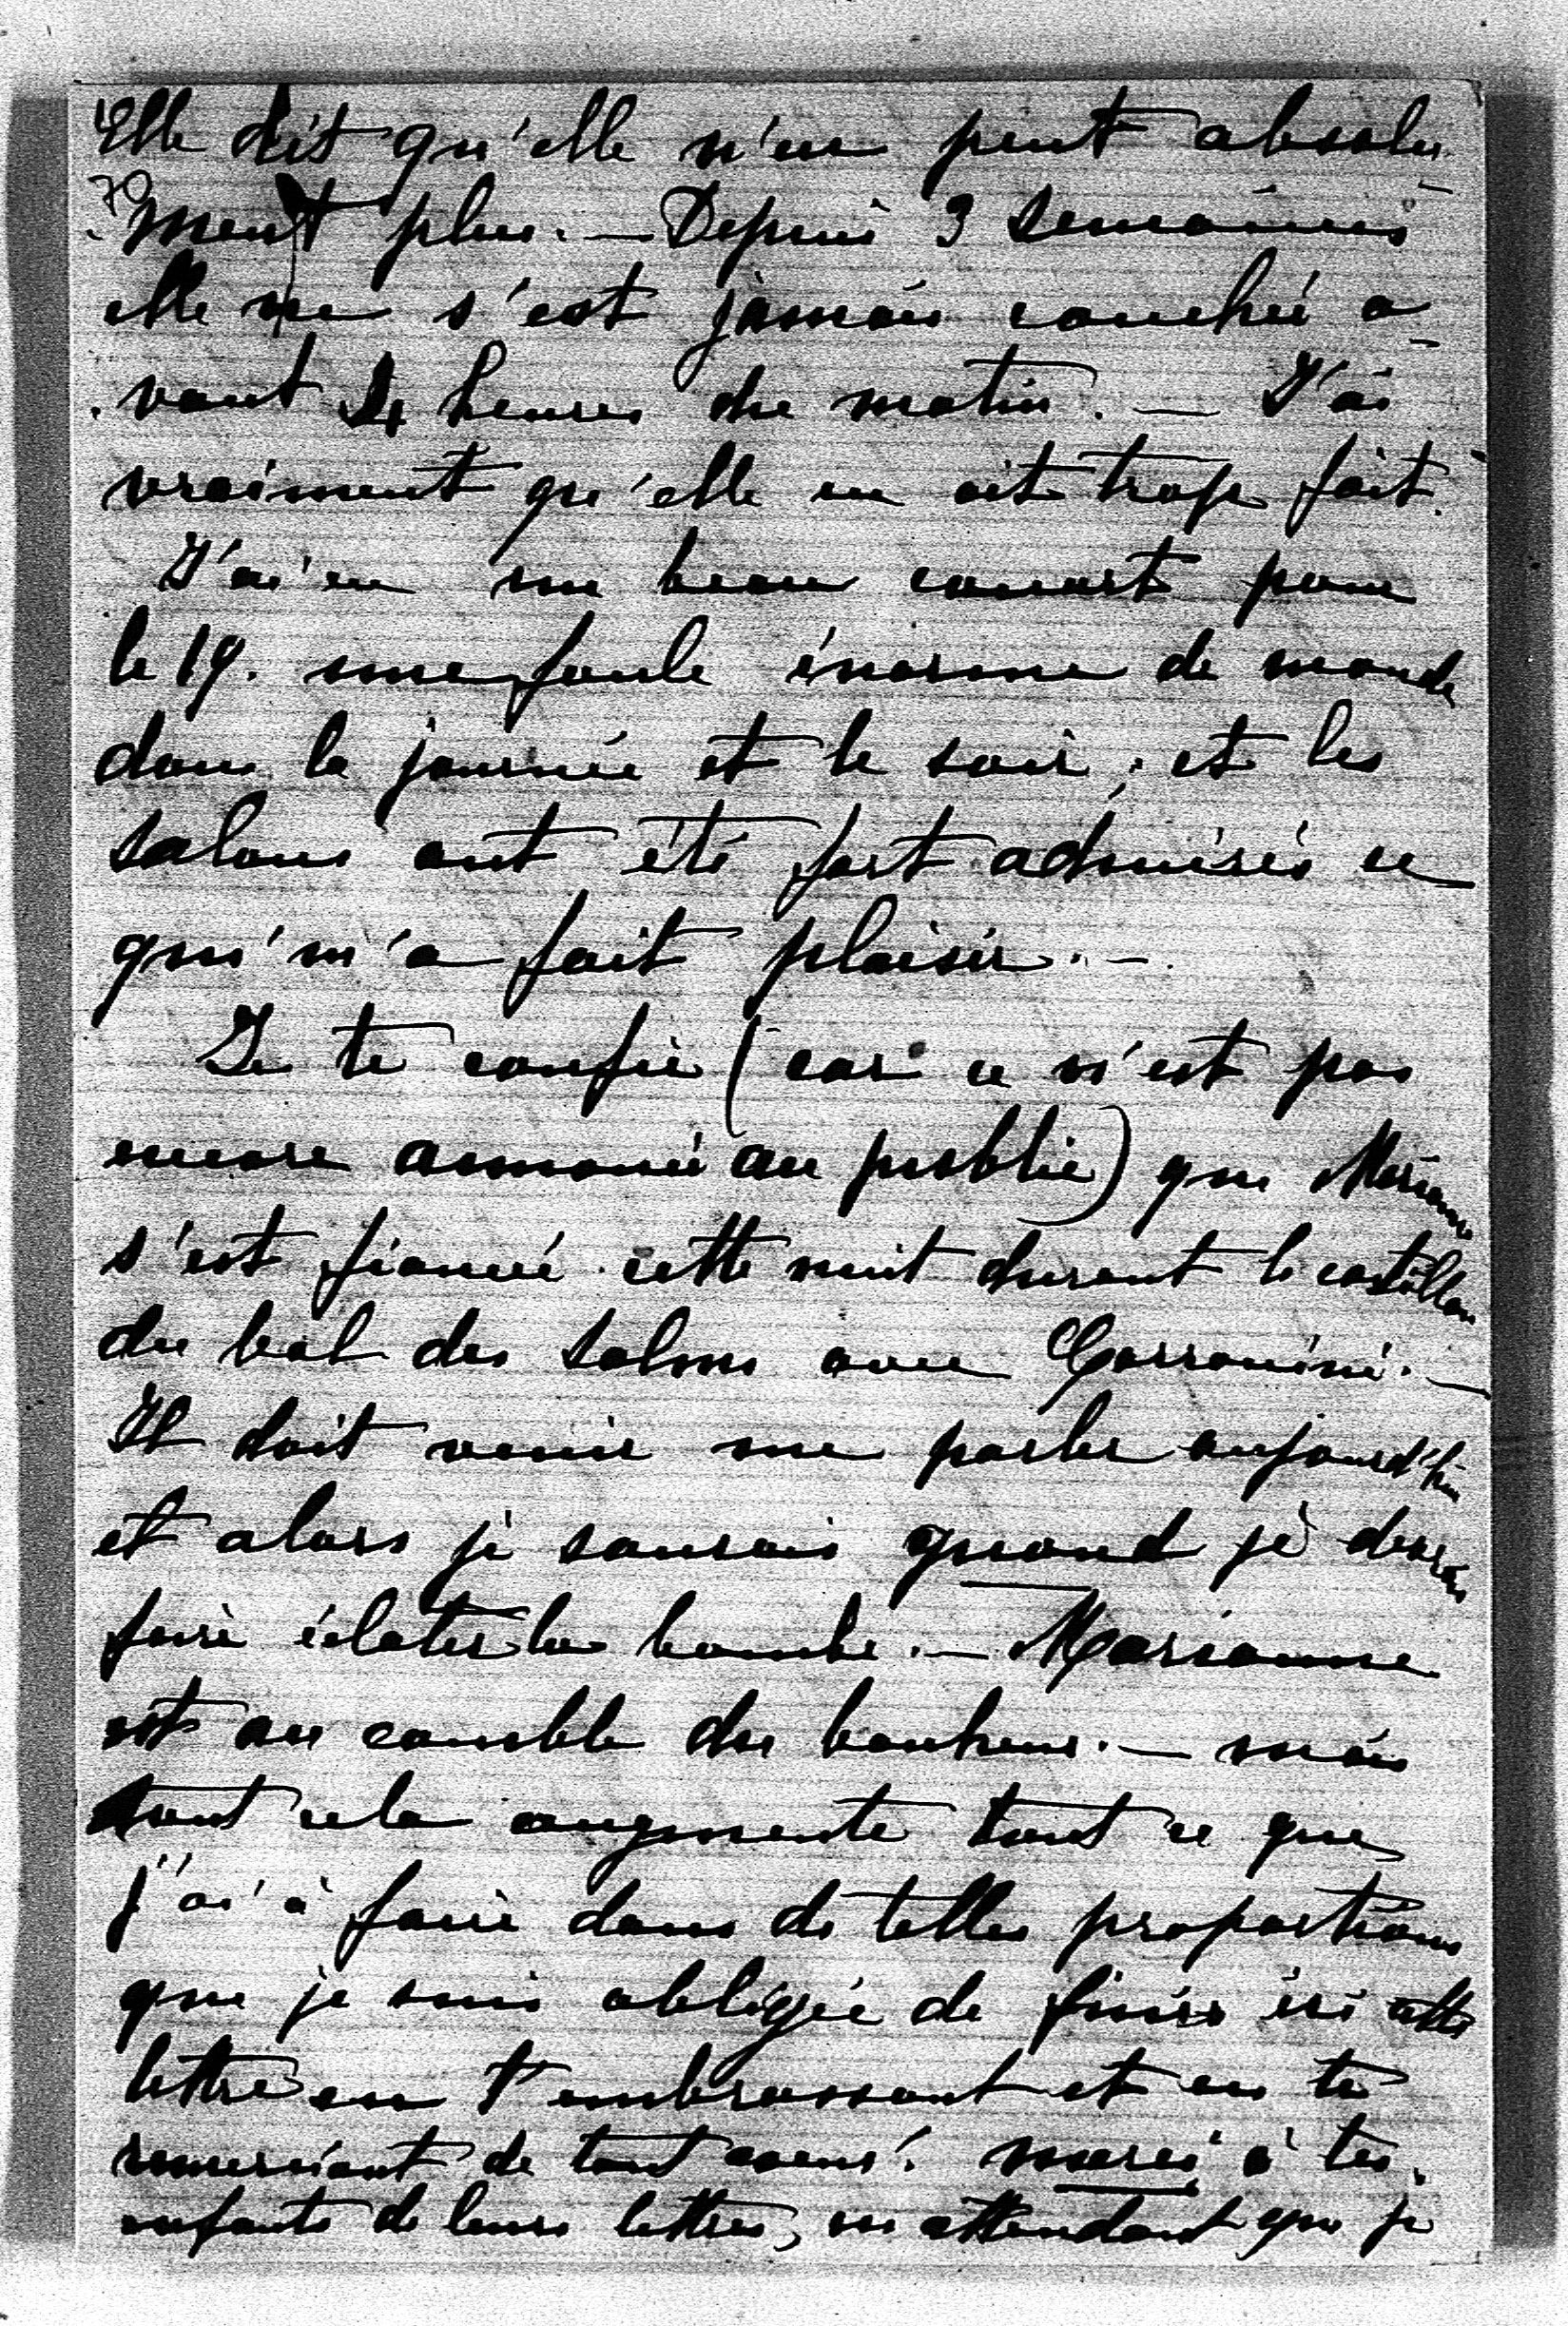 Elle dit qu'elle n'en peut absolu-
70
-ment plus. — Depuis 3 semaines
elle ne s'est jamais couchée a-
-vant 4 heures du matin. — J'ai
vraiment qu'elle en ait trop fait.
J'ai eu un beau concert pour
le 19. une foule énorme de monde
dans la journée et le soir; et les
salons ont été fort admirés ce
qui m'a fait plaisir. —
Je te confie (car ce n'est pas
encore annoncé au public) que Marianne
s'est fiancée cette nuit durant le cotillon
du bal des Salms avec
Il doit venir me parler aujourd'hui
et alors je saurais quand je devrais
faire éclater la bombe. — Marianne
est au comble du bonheur. — mais
tout cela augmente tout ce que
j'ai à faire dans de telles proportions
que je suis obligée de finir ici cette
lettre en t'embrassant et en te
remerciant de tout coeur. merci à tes
enfants de leurs lettres, en attendant que je